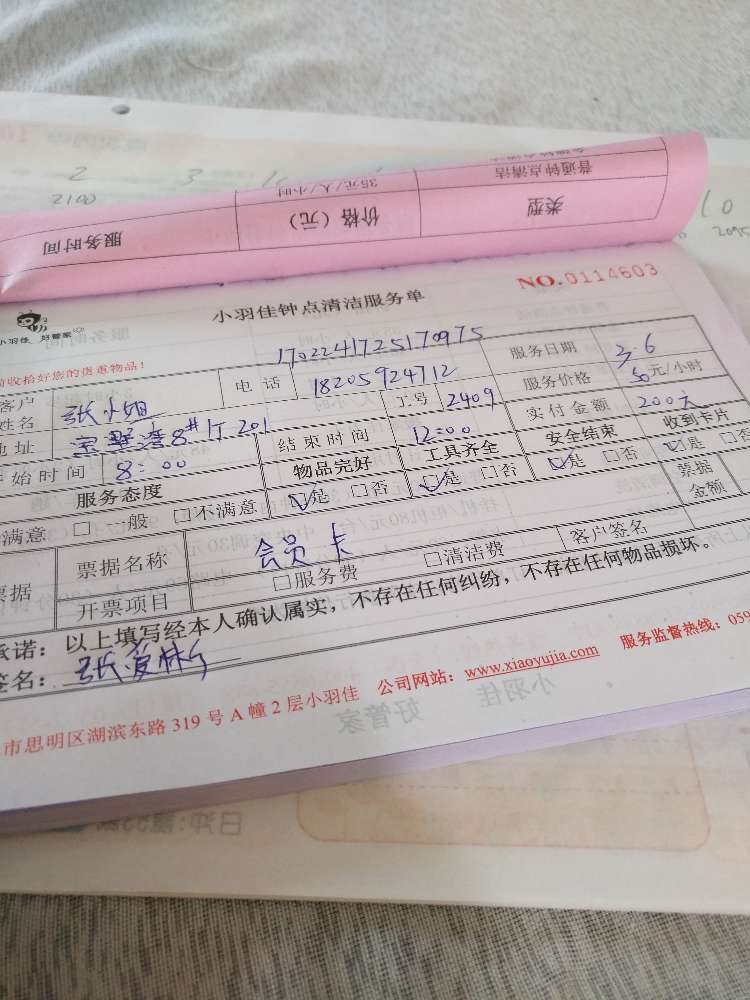 2 3
2100
10
普通钟点清洁 35元/人/小时
类型 价格（元） 服务时间
小羽佳 好管家
小羽佳钟点清洁服务单
NO.0114603
收拾好您的贵重物品！
1702241725170975
客户姓名 张小姐 电话 18205924712 服务日期 3.6
地址 8# 201 工号 2409 服务价格 50元/小时
始时间 8:00 结束时间 12:00 实付金额 200元
服务态度 物品完好 工具齐全 安全结束 收到卡片
满意 □一般 □不满意 ☑是 □否 ☑是 □否 ☑是 □否 ☑是 □否
票据 票据名称 会员卡 客户签名 票据金额
开票项目 □服务费 □清洁费
承诺：以上填写经本人确认属实，不存在任何纠纷，不存在任何物品损坏。
签名：
市思明区湖滨东路 319 号 A 幢 2 层小羽佳 公司网站：www.xiaoyujia.com 服务监督热线：059